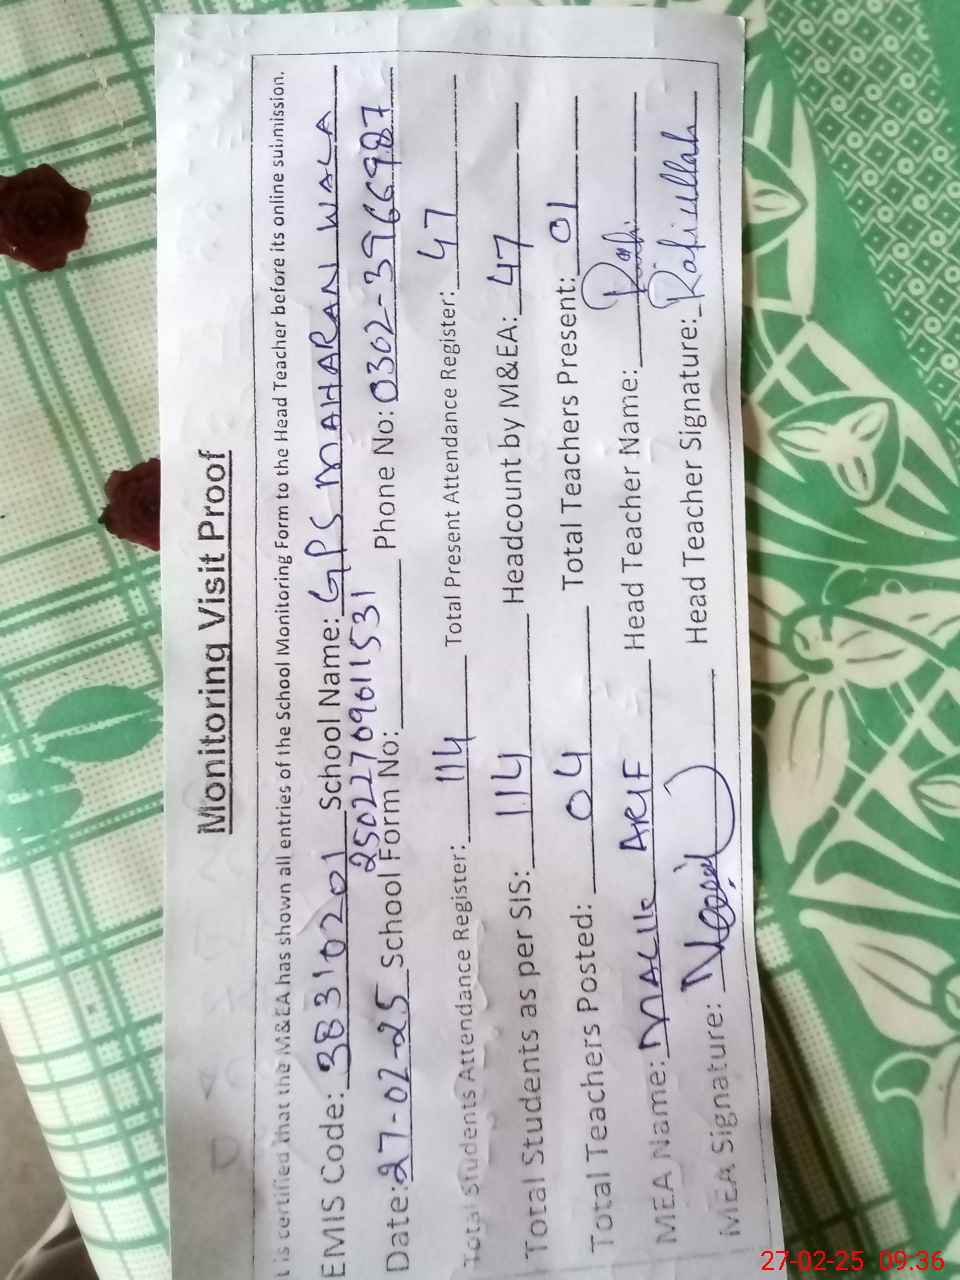 Monitoring Visit Proof
t is certified that the M&EA has shown all entries of the School Monitoring Form to the Head Teacher before its online submission.
EMIS Code: 38310201 School Name: GPS MAHARAN WALA
Date: 27-02-25 School Form No: 25022709611531 Phone No: 0302-3966987
Total Students Attendance Register: 114 Total Present Attendance Register: 47
Total Students as per SIS: 114 Headcount by M&EA: 47
Total Teachers Posted: 04 Total Teachers Present: 01
MEA Name: MALIK ARIF Head Teacher Name: Rafi
MEA Signature: Head Teacher Signature: Rafiullah
27-02-25 09.36